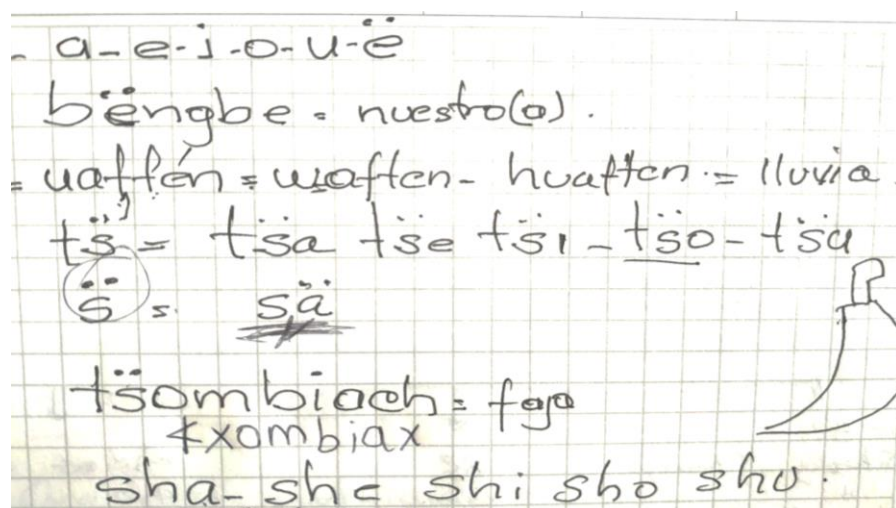 - a-e-i-o-u-ë
bëngbe = nuestro(a).
= uaftén = waften - huaften = lluvia
ts̈ = ts̈a ts̈e ts̈i - ts̈o - ts̈u
s̈ = s̈ä
ts̈ombiach = faja
txombiax
sha - she shi sho shu.